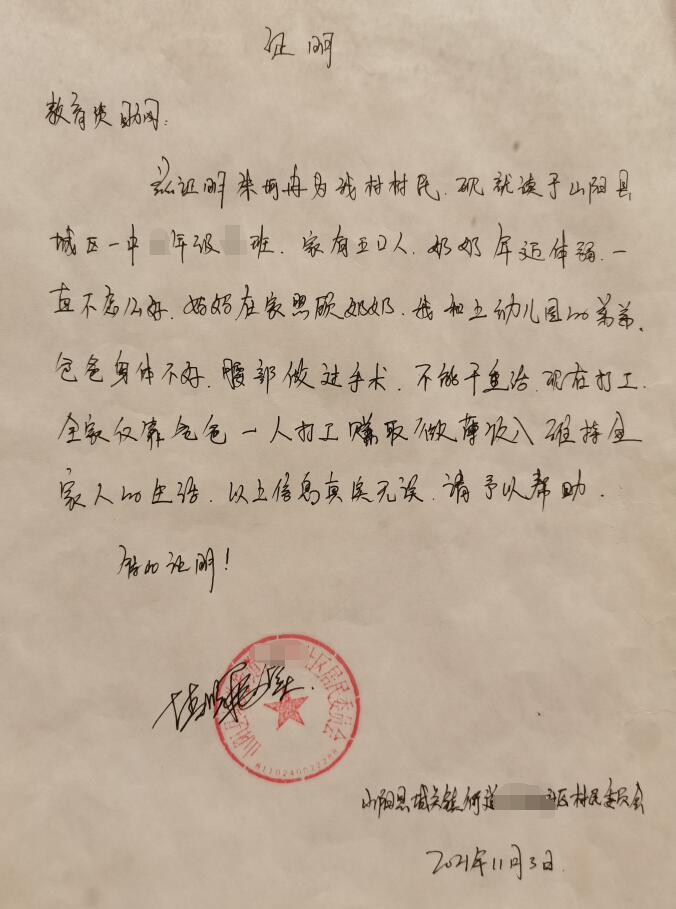 证明
教育资助网:
兹证明 为我村村民.现就读于山阳县
城区一中 年级 班.家有五口人.奶奶年迈体弱.一
直不怎么好.妈妈在家照顾奶奶.我和上幼儿园的弟弟.
爸爸身体不好.腰部做过手术.不能干重活.现在打工.
全家仅靠爸爸一人打工赚取微薄收入维持全
家人的生活.以上信息真实无误.请予以帮助.
特此证明!
区居民委员会
山阳县城关镇 区村民委员会
2021年11月3日.